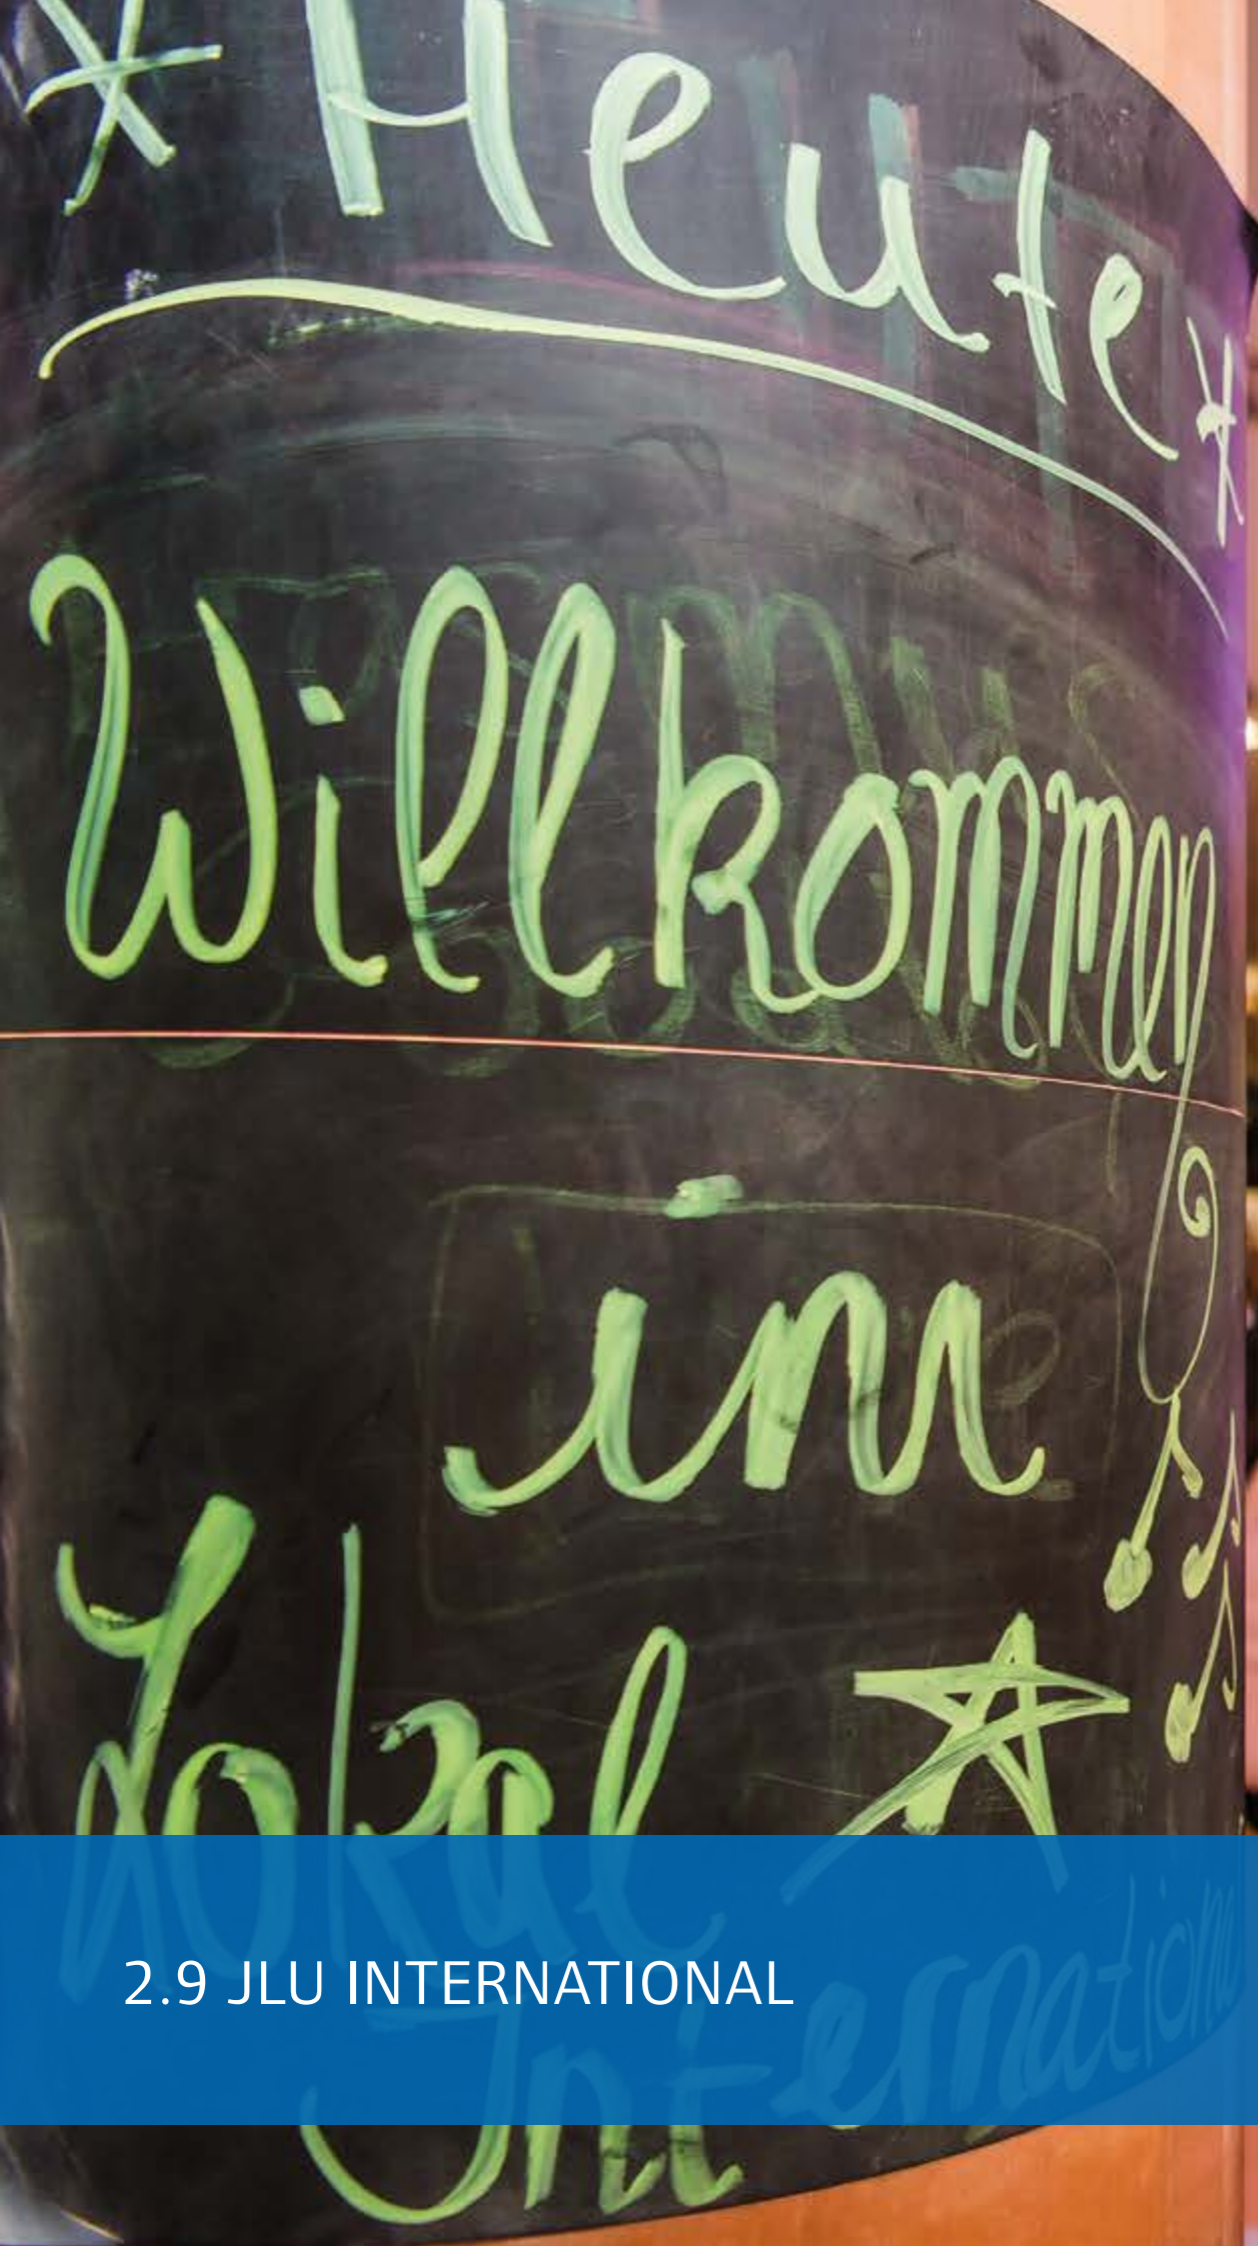 * Heute *
Willkommen
im
Lokal
International
2.9 JLU INTERNATIONAL